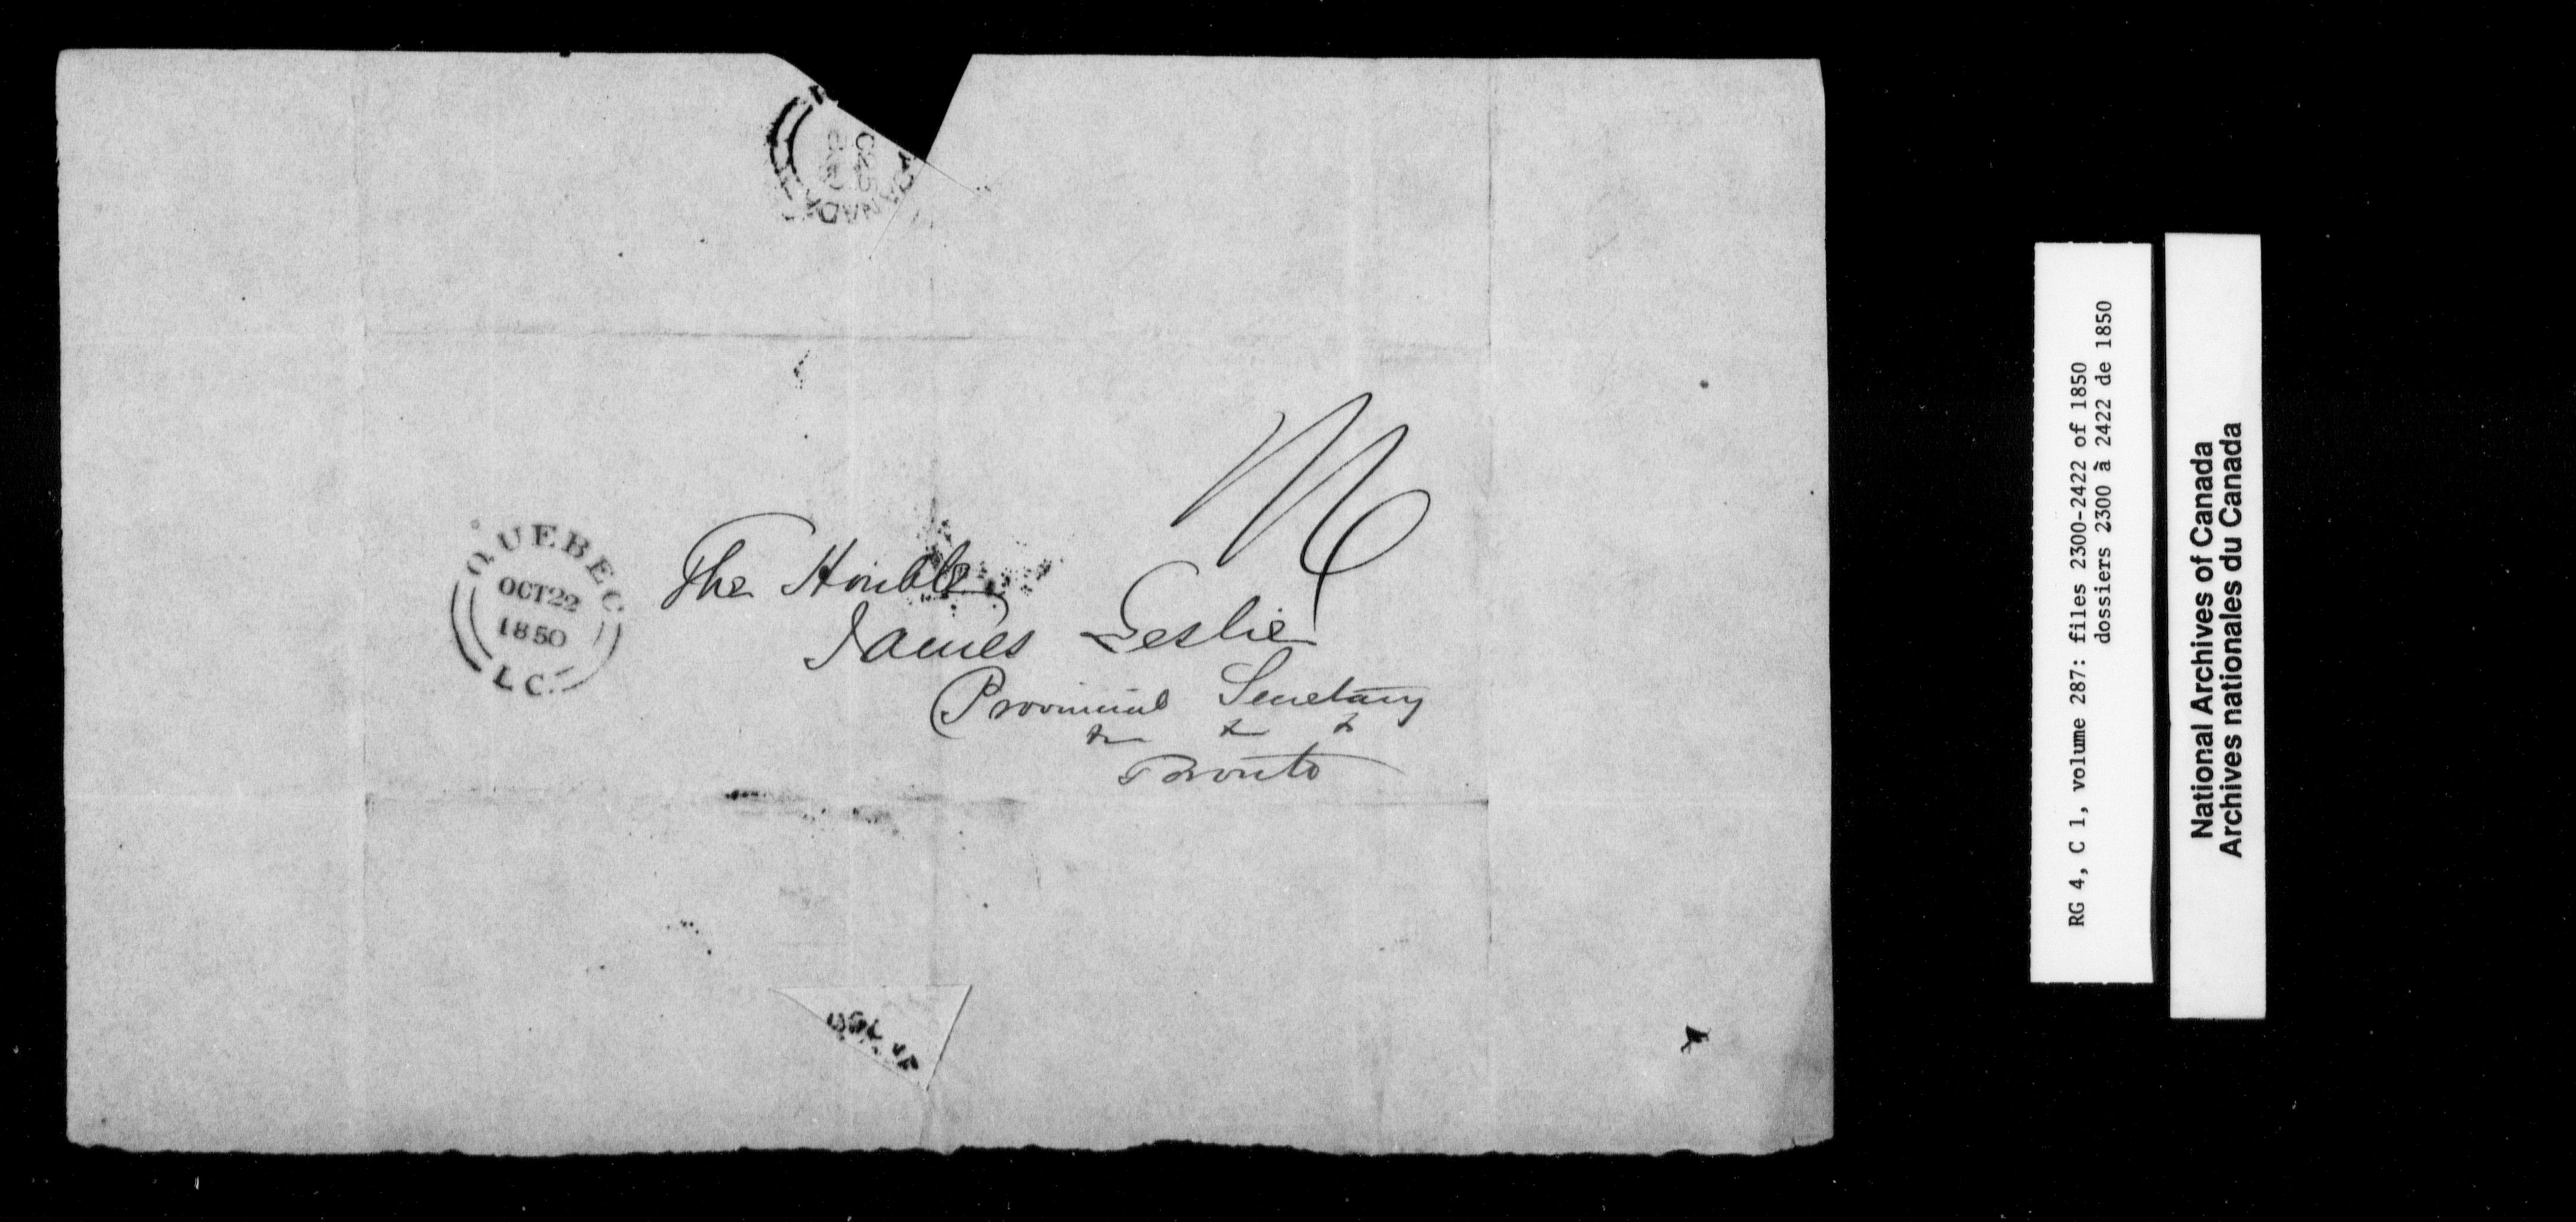 QUEBEC
OCT 22
1850
L.C.
The Honble
James Leslie
Provincial Secretary
&c &c &c
Toronto
RG 4, C 1, volume 287: files 2300-2422 of 1850
dossiers 2300 à 2422 de 1850
National Archives of Canada
Archives nationales du Canada